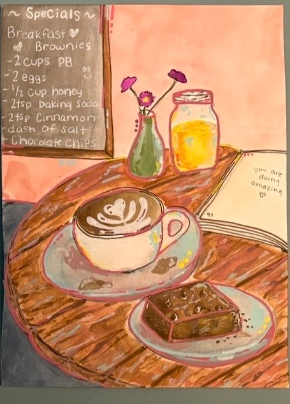 ~ Specials ~
Breakfast
Brownies
- 2 cups PB
- 2 eggs
- 1/2 cup honey
- 2tsp baking soda
- 2tsp Cinnamon
- dash of salt
- Chocolate chips
you are
doing
amazing